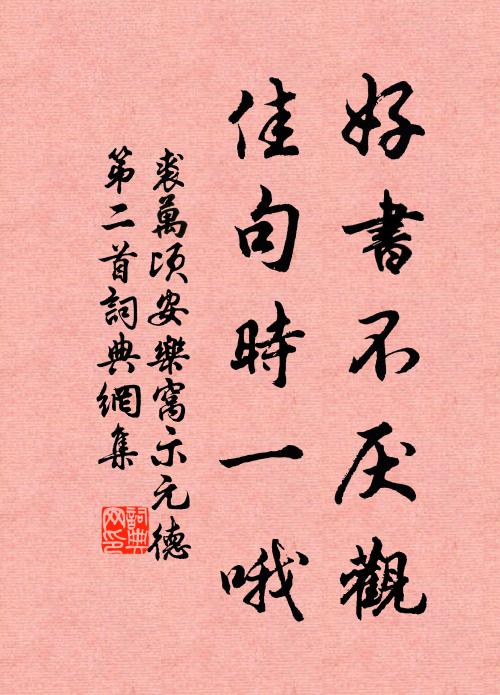 好書不厌觀
佳句時一哦
裘萬頃安樂窩示元德
第二首詞典網集
詞典
网印